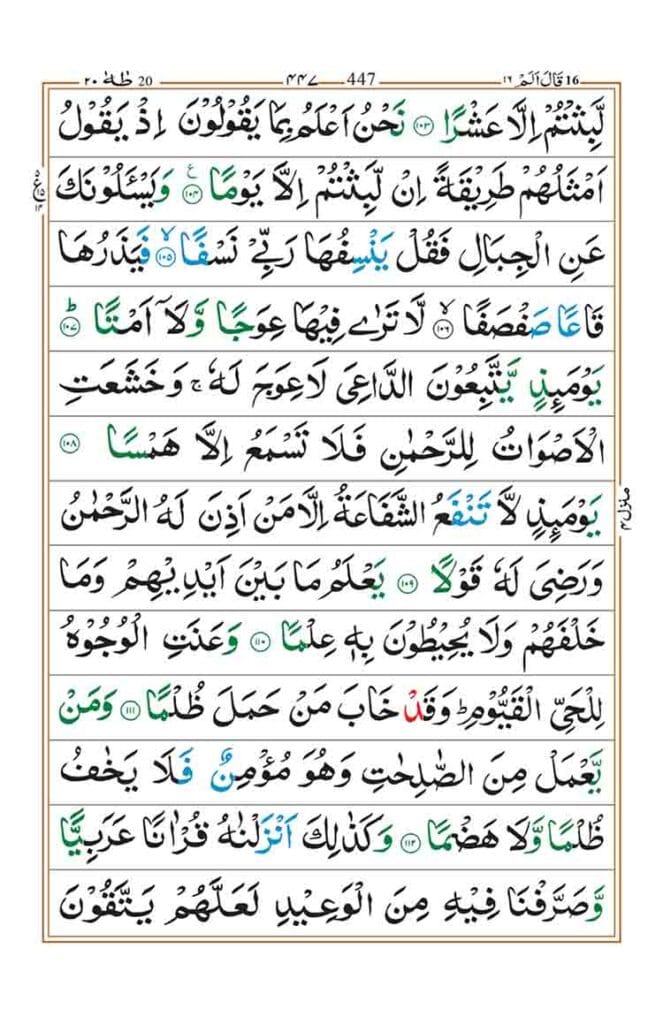 20 طٰهٰ ٢٠ 447 ٤٤٧ 16 قَالَ اَلَمْ ١٦
لَّبِثْتُمْ اِلَّا عَشْرًا ۝١٠٣ نَحْنُ اَعْلَمُ بِمَا يَقُوْلُوْنَ اِذْ يَقُوْلُ
اَمْثَلُهُمْ طَرِيْقَةً اِنْ لَّبِثْتُمْ اِلَّا يَوْمًا ۝١٠٤ وَيَسْـَٔلُوْنَكَ
عَنِ الْجِبَالِ فَقُلْ يَنْسِفُهَا رَبِّيْ نَسْفًا ۝١٠٥ فَيَذَرُهَا
قَاعًا صَفْصَفًا ۝١٠٦ لَّا تَرٰى فِيْهَا عِوَجًا وَّلَآ اَمْتًا ۝١٠٧
يَوْمَىِٕذٍ يَّتَّبِعُوْنَ الدَّاعِيَ لَا عِوَجَ لَهٗ ۚ وَخَشَعَتِ
الْاَصْوَاتُ لِلرَّحْمٰنِ فَلَا تَسْمَعُ اِلَّا هَمْسًا ۝١٠٨
يَوْمَىِٕذٍ لَّا تَنْفَعُ الشَّفَاعَةُ اِلَّا مَنْ اَذِنَ لَهُ الرَّحْمٰنُ
وَرَضِيَ لَهٗ قَوْلًا ۝١٠٩ يَعْلَمُ مَا بَيْنَ اَيْدِيْهِمْ وَمَا
خَلْفَهُمْ وَلَا يُحِيْطُوْنَ بِهٖ عِلْمًا ۝١١٠ وَعَنَتِ الْوُجُوْهُ
لِلْحَيِّ الْقَيُّوْمِ ؕ وَقَدْ خَابَ مَنْ حَمَلَ ظُلْمًا ۝١١١ وَمَنْ
يَّعْمَلْ مِنَ الصّٰلِحٰتِ وَهُوَ مُؤْمِنٌ فَلَا يَخٰفُ
ظُلْمًا وَّلَا هَضْمًا ۝١١٢ وَكَذٰلِكَ اَنْزَلْنٰهُ قُرْاٰنًا عَرَبِيًّا
وَّصَرَّفْنَا فِيْهِ مِنَ الْوَعِيْدِ لَعَلَّهُمْ يَتَّقُوْنَ
منزل ٤